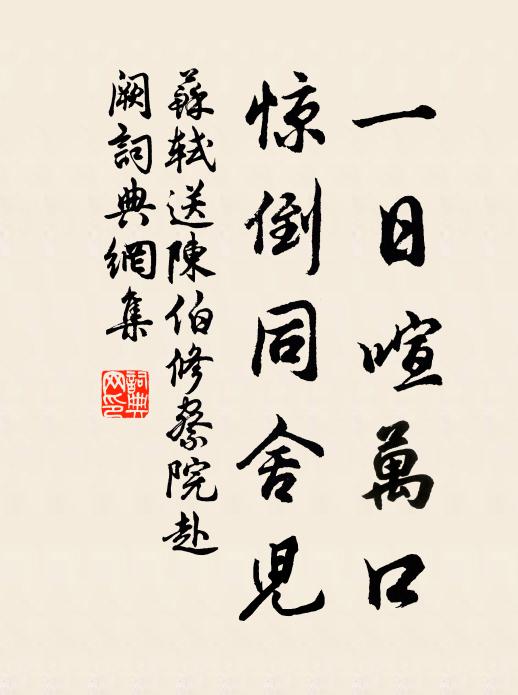 一日喧萬口
惊倒同舍兒
蘇軾送陳伯修察院赴
闕詞典網集
詞典
网印